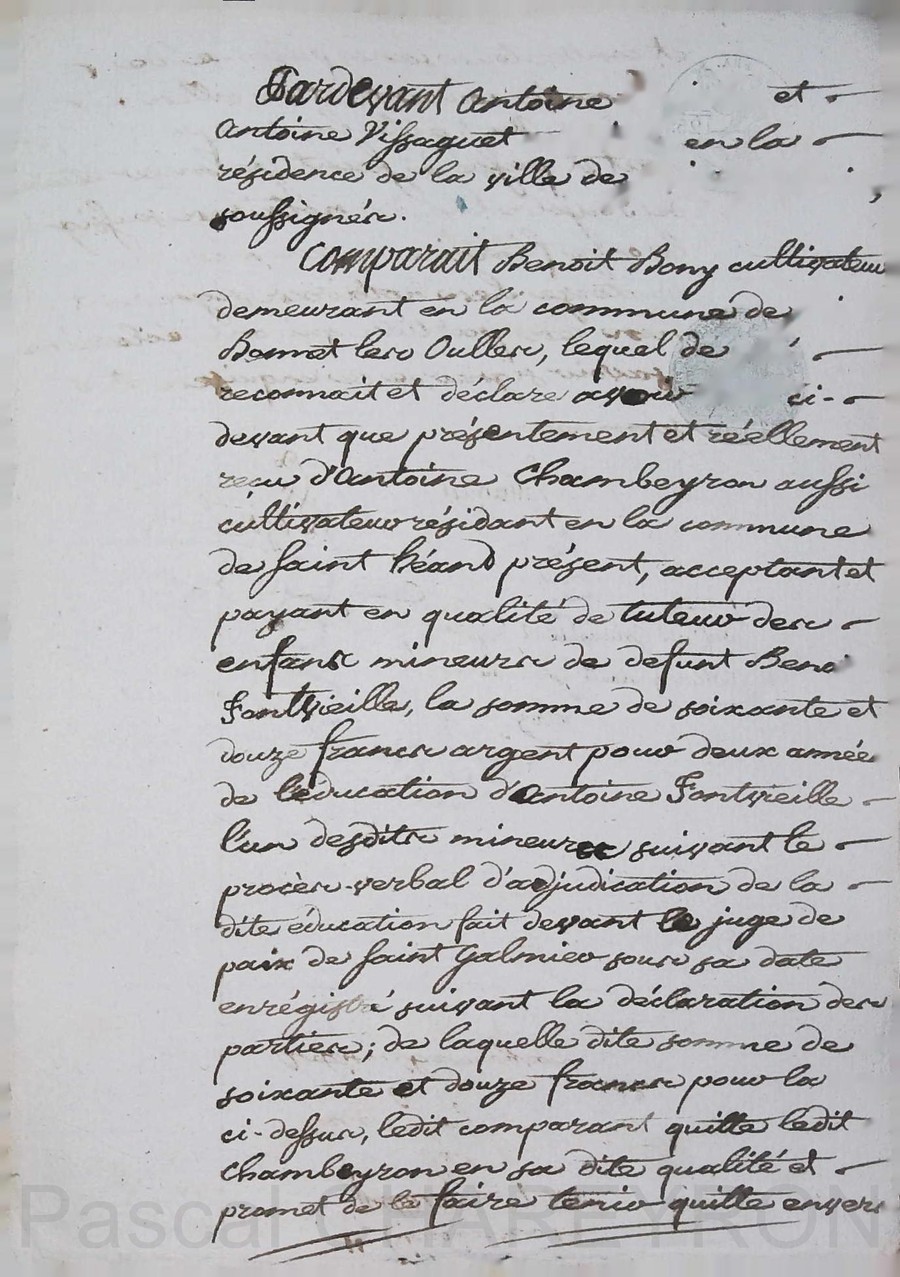 Pardevant Antoine et
Antoine Vissaguet en la
résidence de la ville de
soussignés.
Comparait Benoit Bony cultivateur
demeurant en la commune de
Bonnet les Oulles, lequel de
reconnait et déclare avoir ci-
devant que présentement et réellement
recu d'Antoine Chambeyron aussi
cultivateur résidant en la commune
de saint héand présent, acceptant et
payant en qualité de tuteur des
enfans mineurs de defunt Beno
Fontvieille, la somme de soixante et
douze francs argent pour deux année
de l'éducation d'Antoine Fontvieille
l'un desdits mineurs suivant le
procès-verbal d'adjudication de la
dite éducation fait devant le juge de
paix de saint Galmier sous sa date
enrégistré suivant la déclaration des
parties; de laquelle dite somme de
soixante et douze francs pour la
ci-dessus, ledit comparant quitte ledit
Chambeyron en sa dite qualité et
promet de le faire tenir quitte envers
Pascal CHAREYRON